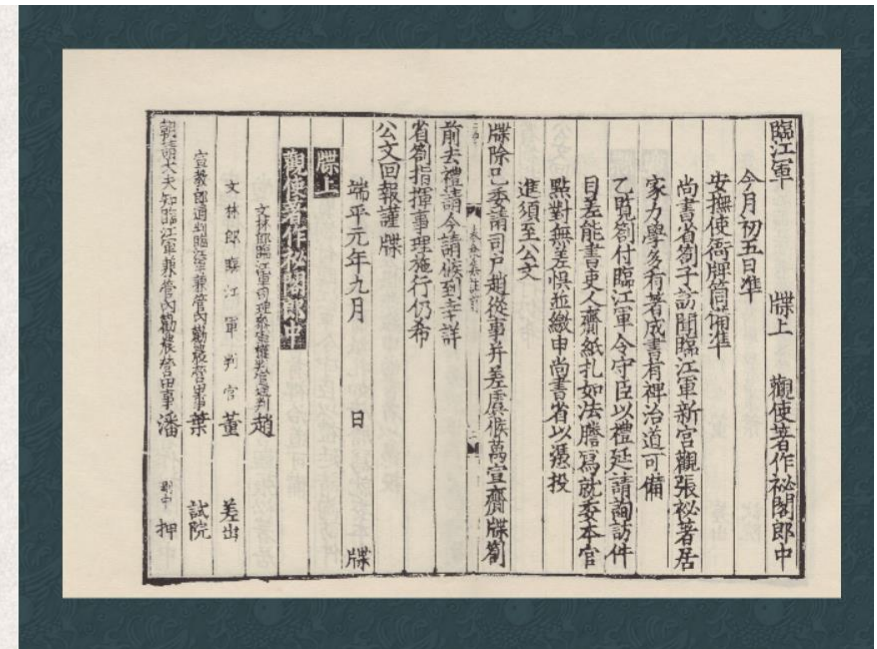 臨江軍 牒上 觀使著作祕閣郎中
今月初五日準
安撫使衙牌筒備準
尚書省劄子訪聞臨江軍新宮觀張祕著居
家力學多有著成書有裨治道可備
乙覽劄付臨江軍令守臣以禮延請詢訪件
目差能書吏人齎紙札如法謄寫就委本官
點對無差悞並繳申尚書省以憑投
進須至公文
牒除已委請司戶趙從事并差虞候萬宣齎牒劄
前去禮請今請候到幸詳
省劄指揮事理施行仍希
公文回報謹牒
端平元年九月 日 牒
牒上
觀使著作祕閣郎中
文林郎臨江軍司理參軍權判官 趙
文林郎臨江軍判官董 差出
宣教郎通判臨江軍兼管內勸農營田事葉 試院
朝請大夫知臨江軍兼管內勸農營田事潘 押